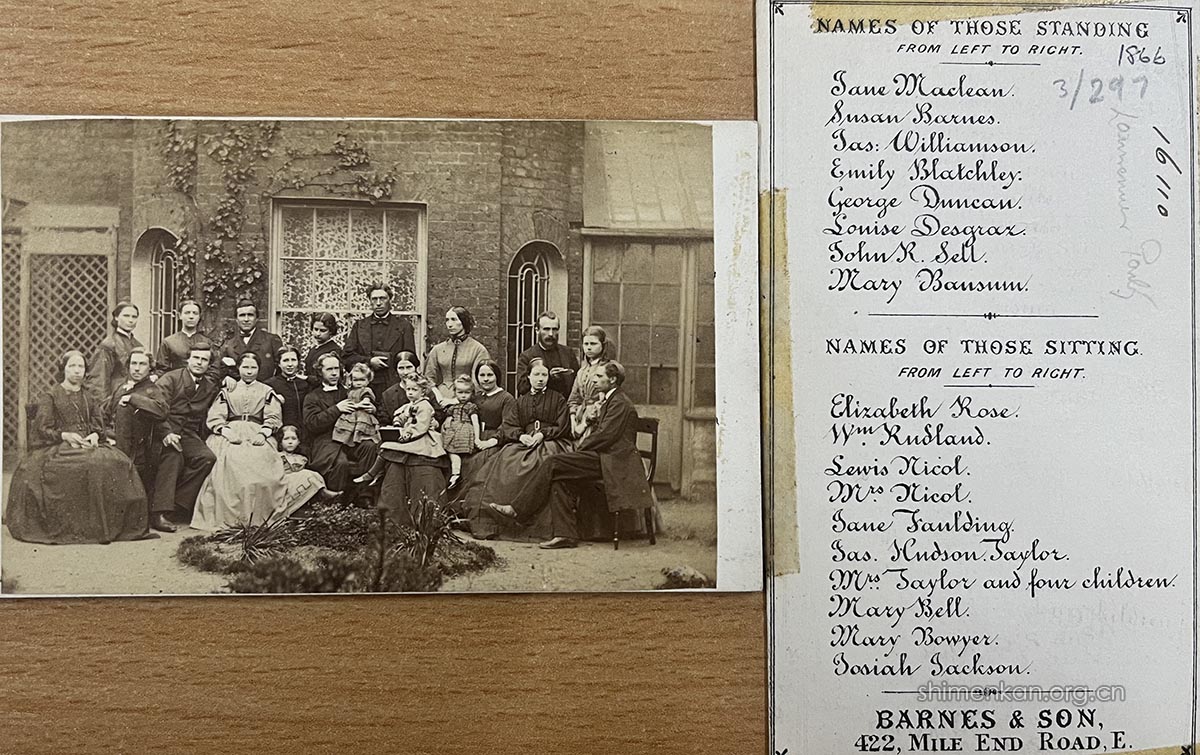 NAMES OF THOSE STANDING
FROM LEFT TO RIGHT.
1866
3/297
Jane Maclean.
Susan Barnes.
Jas: Williamson.
Emily Blatchley.
George Duncan.
Louise Desgraz.
John R. Sell.
Mary Bausum.
Lammermuir Party
16110
NAMES OF THOSE SITTING.
FROM LEFT TO RIGHT.
Elizabeth Rose.
Wm. Rudland.
Lewis Nicol.
Mrs. Nicol.
Jane Faulding.
Jas. Hudson Taylor.
Mrs. Taylor and four children.
Mary Bell.
Mary Bowyer.
Josiah Jackson.
shimenkan.org.cn
BARNES & SON,
422, MILE END ROAD, E.